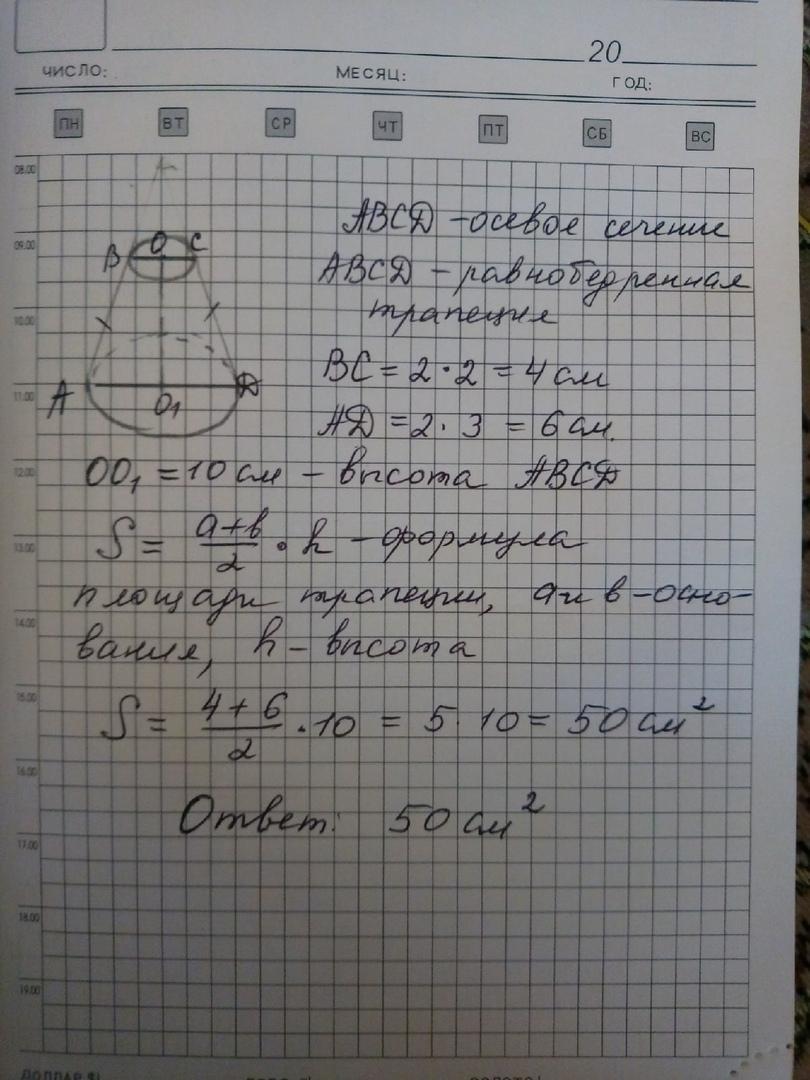 20
ЧИСЛО: МЕСЯЦ: ГОД:
ПН ВТ СР ЧТ ПТ СБ ВС
08.00
ABCD – осевое сечение
09.00
B O C
ABCD – равнобедренная
трапеция
10.00
BC = 2 · 2 = 4 см
A O₁ D
11.00
AD = 2 · 3 = 6 см.
OO₁ = 10 см – высота ABCD
12.00
S = (a+b)/2 · h – формула
13.00
площади трапеции, a и b – осно-
14.00
вания, h – высота
15.00
S = (4+6)/2 · 10 = 5 · 10 = 50 см²
16.00
Ответ: 50 см²
17.00
18.00
19.00